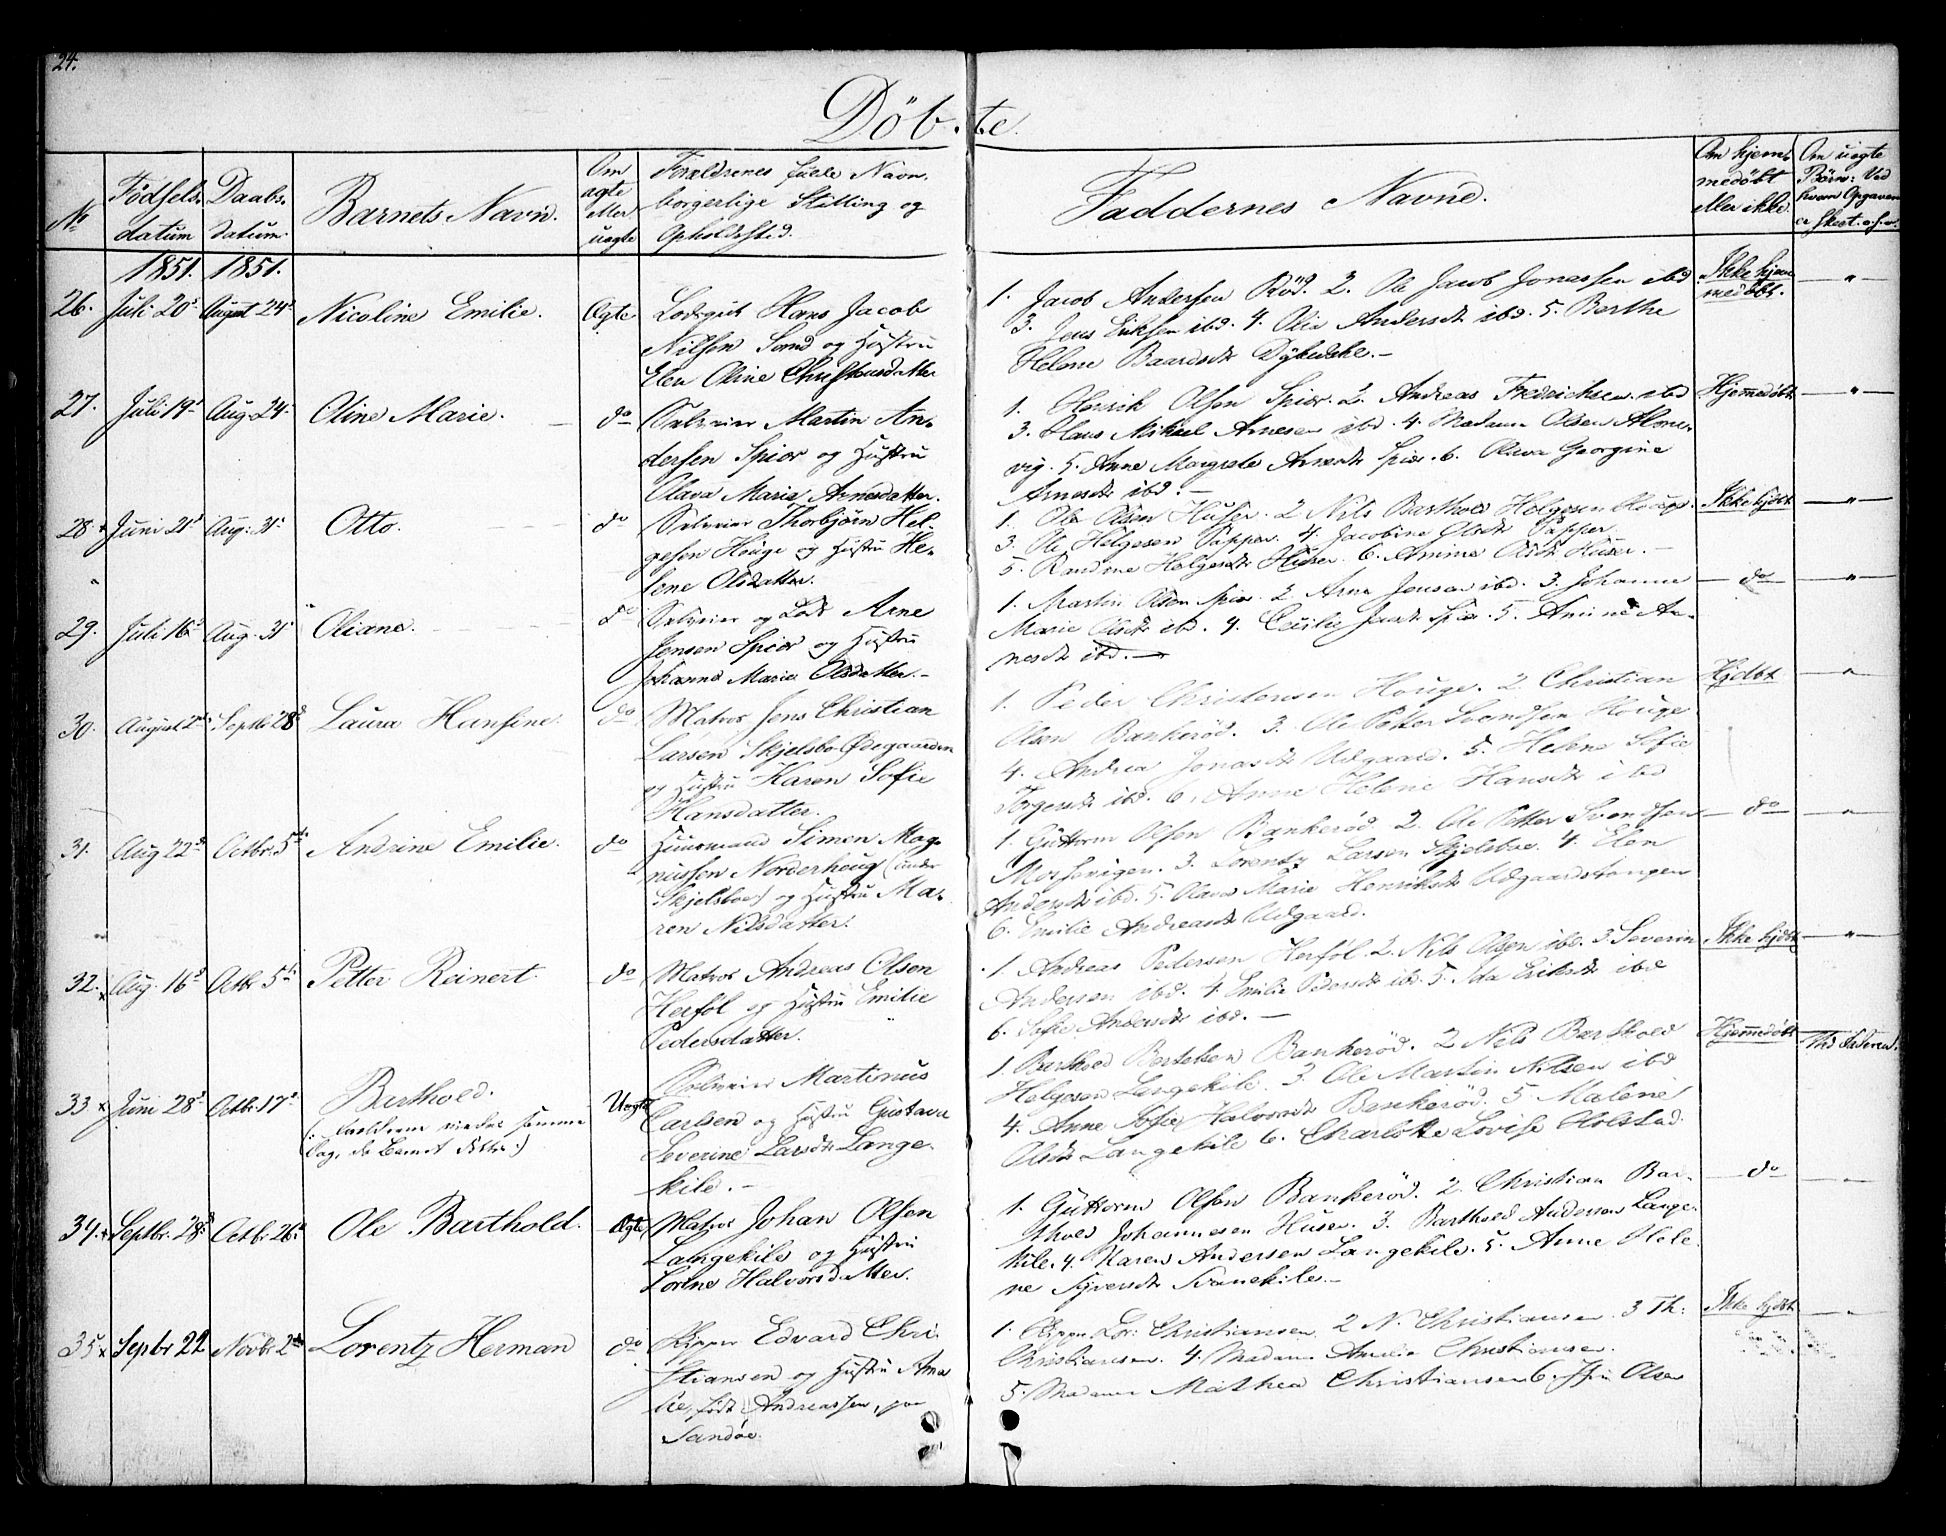 24.
Döbte.
No
Födsels-
datum
Daabs-
datum.
Barnets Navn.
Om
ægte
eller
uægte
Forældrenes fulde Navn,
borgerlige Stilling og
Opholdssted.
Faddernes Navne.
Om hjem-
medöbt
eller ikke.
Om uægte
Börn: Ved
hvem Opgaven
er skeet. o.s.v.
1851. 1851.
26. Juli 20de August 24de Nicoline Emilie. Ægte
Lodsgut Hans Jacob
Nilsen Sand og Hustru
Elen Oline Christensdatter
1. Jacob Andersen Röd. 2. Ole Jacob Jonassen ibd
3. Jens Eriksen ibd. 4. Olia Andersdtr ibd. 5. Berthe
Helene Baardsdtr Dÿkedalle.—
Ikke hjem-
medöbt.
"
27. Juli 19de Aug. 24de Oline Marie. do
Selveier Martin An-
dersen Spiær og Hustru
Olava Maria Arnesdatter.
1. Henrik Olsen Spiær. 2. Andreas Fredrichsen ibd
3. Hans Mikael Arnesen ibd. 4. Madame Olsen Alme-
vig. 5. Anne Margrete Arnesdtr Spiær. 6. Olava Georgine
Arnesdtr ibd.—
Hjemmedöbt
"
28. Juni 21de Aug: 31te Otto. do
Selveier Thorbjörn Hel-
gesen Houge og Hustru He-
lene Olsdatter.
1. Ole Olsen Huser. 2 Nils Barthold Helgesen Houge.
3. Ole Helgesen Papper. 4. Jacobine Olsdtr Papper.
5. Randine Helgesdtr Huser. 6. Amine Olsdtr Huser.—
Ikke hjdbt
"
29. Juli 16de Aug. 31te Oliane. do
Selveier og Lods Arne
Jensen Spiær og Hustru
Johanne Maria Olsdatter.—
1. Martin Olsen Spiær. 2 Arne Jensen ibd. 3. Johanne
Marie Olsdtr ibd. 4. Cecilie Jansdtr Spiær. 5. Anine Ar-
nesdtr ibd.—
do
"
30. August 2den Septbr 28de Laura Hansine. do
Matros Jens Christian
Larsen Skjelsbo-Ödegaarden
og Hustru Karen Sofie
Hansdatter.
1. Peder Christensen Houge. 2 Christian
Olsen Bankeröd. 3. Ole Petter Svendsen Houge.
4. Andrea Jonasdtr Udgaard. 5. Helene Sofie
Torgersdtr ibd. 6. Anne Helene Hansdtr ibd
Hjdbt
"
31. Aug 22de Octbr. 5te Andrine Emilie. do
Huusmand Simen Mag-
nussen Norderhoug (under
Skjelsboe) og Hustru Ma-
ren Nilsdatter.
1. Guttorm Olsen Bankeröd 2. Ole Petter Svendsen
Morsevigen. 3. Lorentz Larsen Skjelsboe. 4. Elen
Andersdtr ibd. 5. Olava Marie Henriksdtr Udgaardstangen
6. Emilie Andreasdtr Udgaard.
do
"
32. Aug. 16de Octbr 5te Petter Reinert. do
Matros Andreas Olsen
Herföl og Hustru Emilie
Pedersdatter.
1. Andreas Pedersen Herföl. 2. Nils Olsen ibd. 3. Severin
Andersen ibd. 4. Emilie Pedersdtr ibd. 5. Ida Eriksdtr ibd
6. Sofie Andersdtr ibd.—
Ikke hjdbt
"
33. Juni 28de Octbr. 17de Barthold.
(: Forældrene viedes samme
Dag, da Barnet döbtes:)
Uægte
Selveier Martinus
Carlsen og Hustru Gustava
Severine Larsdtr Lange-
kile.—
1. Barthold Bertelsen Bankeröd. 2 Nils Barthold
Helgesen Langekile. 3. Ole Martin Nilsen ibd
4. Anne Sofie Halvorsdtr Bankeröd. 5. Malene
Olsdtr Langekile 6. Charlotte Lovise Holstad.
Hjemmedöbt
Ved Faderen.
34. Septbr. 28de Octbr. 26de Ole Barthold. Ægte
Matros Johan Olsen
Langekile og Hustru
Lorine Halvorsdatter.
1. Guttorm Olsen Bankeröd. 2. Christian Bar-
thold Johannesen Huser. 3. Barthold Andersen Lange-
kile. 4. Maren Andersen Langekile. 5. Anne Hele-
ne Syversdtr Svanekile.—
do
"
35 Septbr 22 Novbr 2den Lorentz Herman do
Skipper Edvard Chri-
stiansen og Hustru Ama-
lie, född Andreassen, paa
Sandöe.
1. Skipper Lor: Christiansen. 2 N. Christiansen. 3 Th:
Christiansen. 4. Madame Amelia Christiansen.
5. Madame Mathea Christiansen 6. Olsen
Ikke hjdbt
"